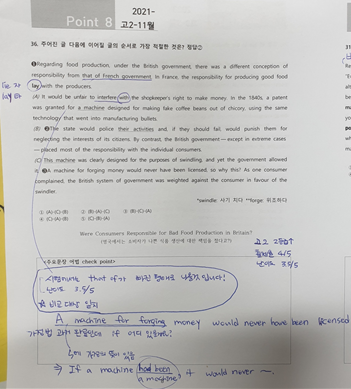 Point 8
2021-
고2-11월
36. 주어진 글 다음에 이어질 글의 순서로 가장 적절한 것은? 정답②
❶Regarding food production, under the British government, there was a different conception of
responsibility from that of French government. In France, the responsibility for producing good food
lay with the producers.
(A) It would be unfair to interfere with the shopkeeper's right to make money. In the 1840s, a patent
was granted for a machine designed for making fake coffee beans out of chicory, using the same
technology that went into manufacturing bullets.
(B) ❷The state would police their activities and, if they should fail, would punish them for
neglecting the interests of its citizens. By contrast, the British government — except in extreme cases
— placed most of the responsibility with the individual consumers.
(C) This machine was clearly designed for the purposes of swindling, and yet the government allowed
it. ❸A machine for forging money would never have been licensed, so why this? As one consumer
complained, the British system of government was weighted against the consumer in favour of the
swindler.
*swindle 사기 치다 **forge 위조하다
① (A)-(C)-(B) ② (B)-(A)-(C) ③ (B)-(C)-(A)
④ (C)-(A)-(B) ⑤ (C)-(B)-(A)
Were Consumers Responsible for Bad Food Production in Britain?
고2
4/5
난이도 3.5/5
that of가
난이도 3.5/5
A machine for forging money would never have been licensed
⇒ If a machine had been
it would never ~.